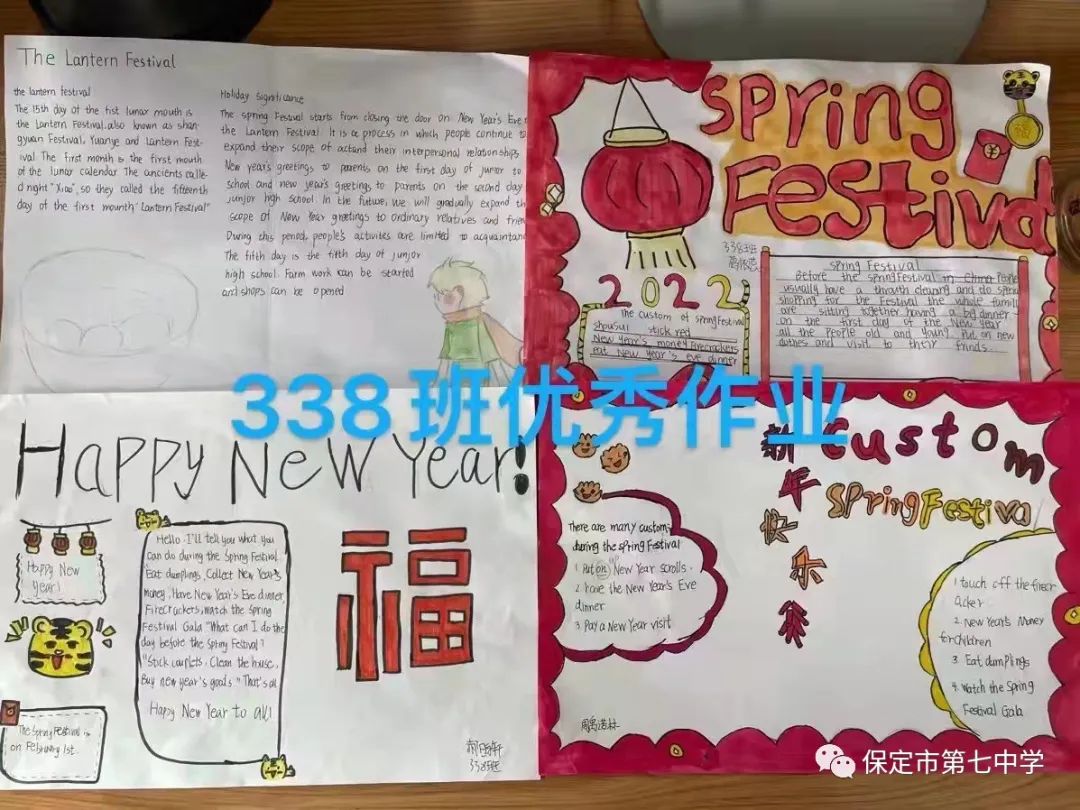 The Lantern Festival
the lantern festival
The 15th day of the fist lunar mouth is
the Lantern Festival.also known as shan-
gyuan Festival, Yuanye and Lantern Fest-
ival The first month is the first mouth
of the lunar calendar The ancients calle-
d night "Xiao", so they called the fifteenth
day of the first mounth "Lantern Festival"
Holiday Significance
The spring Festival starts from closing the door on New Year's Eve
the Lantern Festival. It is a process in which people continue to
expand their scope of actand their interpersonal relationships
New year's greetings to parents on the first day of junior to
school and new year's greetings to parents on the second day
junjor high school. In the future, we will gradually expand the
scope of New Year greetings to ordinary relatives and frie
During this period, people's activites are limited to acquaintanc
The fifth day is the fifth day of junjor
high school. Farm work can be started
and shops can be opened
Spring
Festival
福
338班
2022
The custom of spring Festival
shousui stick red
New Year's money Firecrackers
eat New Year's eve dinner
spring Festival
Before the spring Festival in China People
usually have a thrauth cleaning and do spend
shopping for the Festival the whole family
are sitting together having a big dinner
on the first day of the New Year
all the People old and young Put on new
clothes and visit to their frinds.
338班优秀作业
Happy New Year!
Happy New
Year!
The Spring Festival is
on February 1st.
Hello. I'll tell you what you
can do during the Spring Festival.
Eat dumplings, Collect New Year's
money, Have New Year's Eve dinner,
Firecrackers, watch the Spring
Festival Gala "What can I do the
day before the Spring Festival?
"Stick couplets, Clean the house,
Buy new year's goods." That's all
Happy New Year to all!
福
338班
Custom
Spring Festival
新年快乐
There are many custom
during the spring Festival
1. Put on New Year scrolls.
2. have the New Year's Eve
dinner
3. Pay a New Year visit
1 touch off the firecr
acker
2. New Year's Money
for children
3. Eat dumplings
4. Watch the Spring
Festival Gala
保定市第七中学